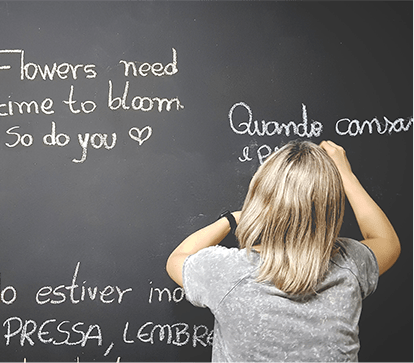 Flowers need
time to bloom.
So do you ♡
Quando cansar
e
o estiver
PRESSA, LEMBRE